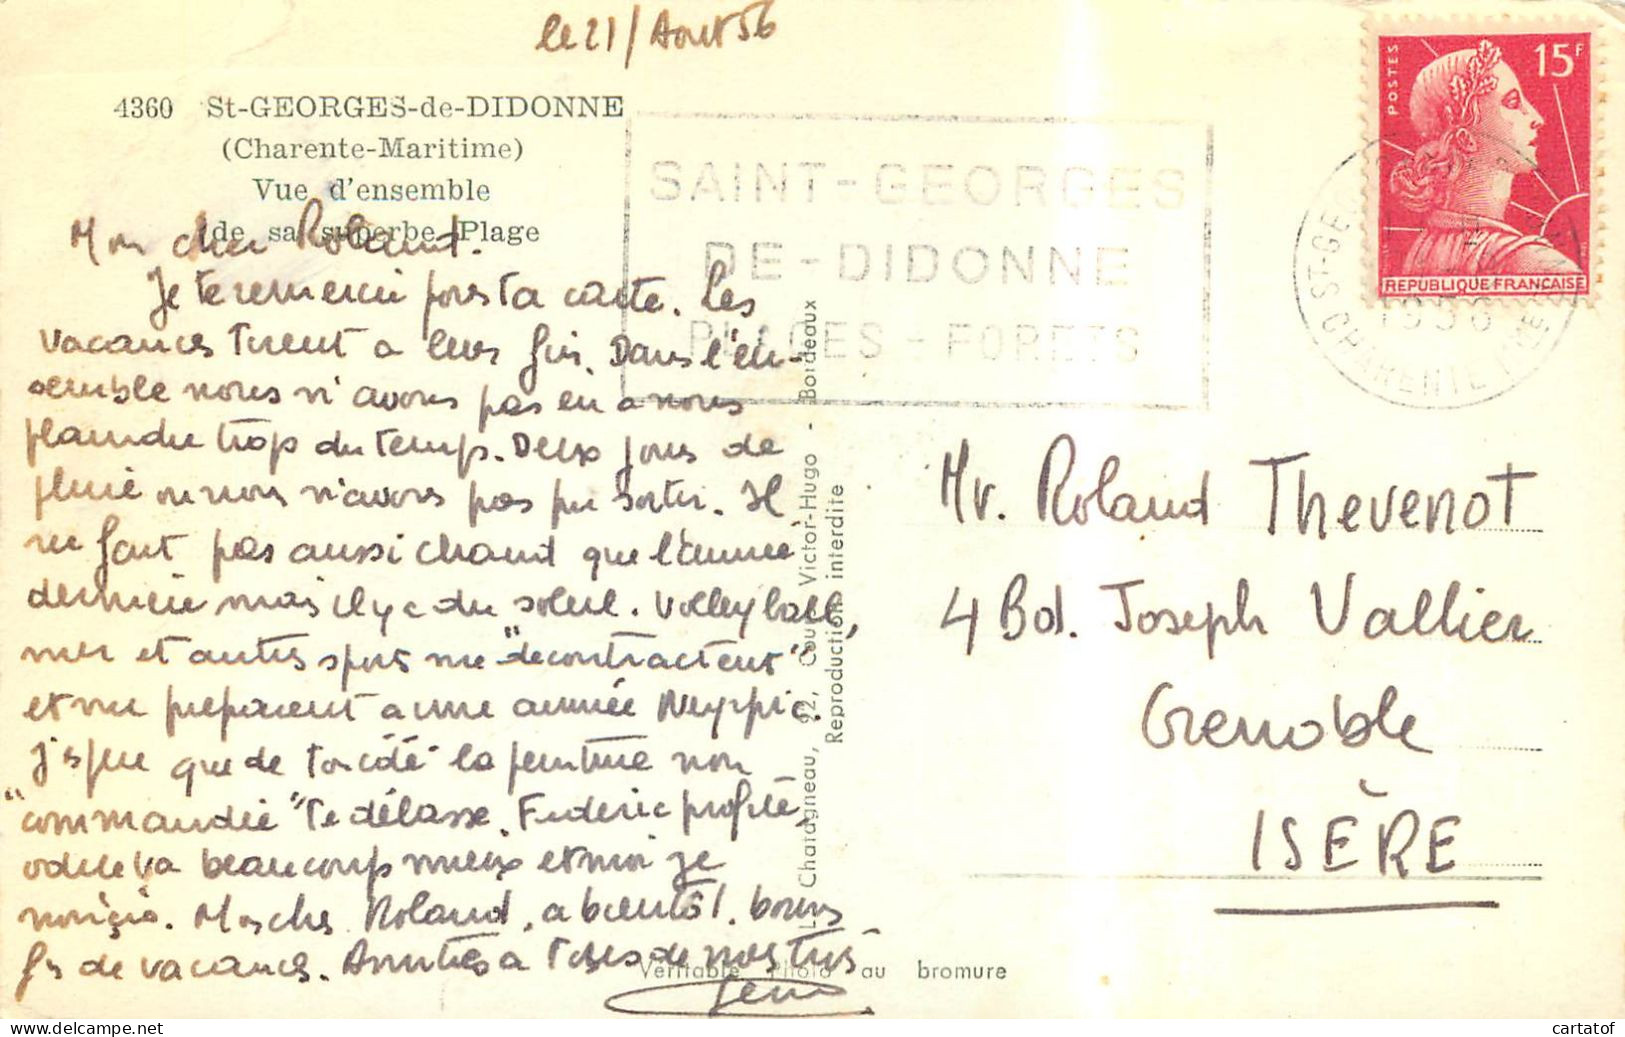 le 21/Aout 56
4360 St-GEORGES-de-DIDONNE
(Charente-Maritime)
Vue d'ensemble
de sa superbe Plage
SAINT-GEORGES
DE-DIDONNE
PLAGES-FORETS
POSTES
15F
REPUBLIQUE FRANÇAISE
1956
Mon cher Roland.
Je te remercie pour ta carte. Les
vacances tirent a leur fin. Dans l'en-
semble nous n'avons pas eu a nous
plaindre trop du temps. Deux jours de
pluie ou nous n'avons pas pu sortir. Il
ne fait pas aussi chaud que l'année
dernière mais il y a du soleil. Volley ball,
mer et autres sports me "decontractent"
et me preparent a une année Neyrpic.
J'espere que de ton côté la peinture non
"commandée" te délasse. Frederic profite,
odile va beaucoup mieux et moi je
noircis. Mon cher Roland, a bientôt. bonne
fin de vacances. Amitiés a tes de nous trois
L. Chatagneau, 92, Cours Victor-Hugo - Bordeaux
Reproductions interdite
Véritable Photo au bromure
Mr. Roland Thevenot
4 Bd. Joseph Vallier
Grenoble
ISÈRE
cartatof